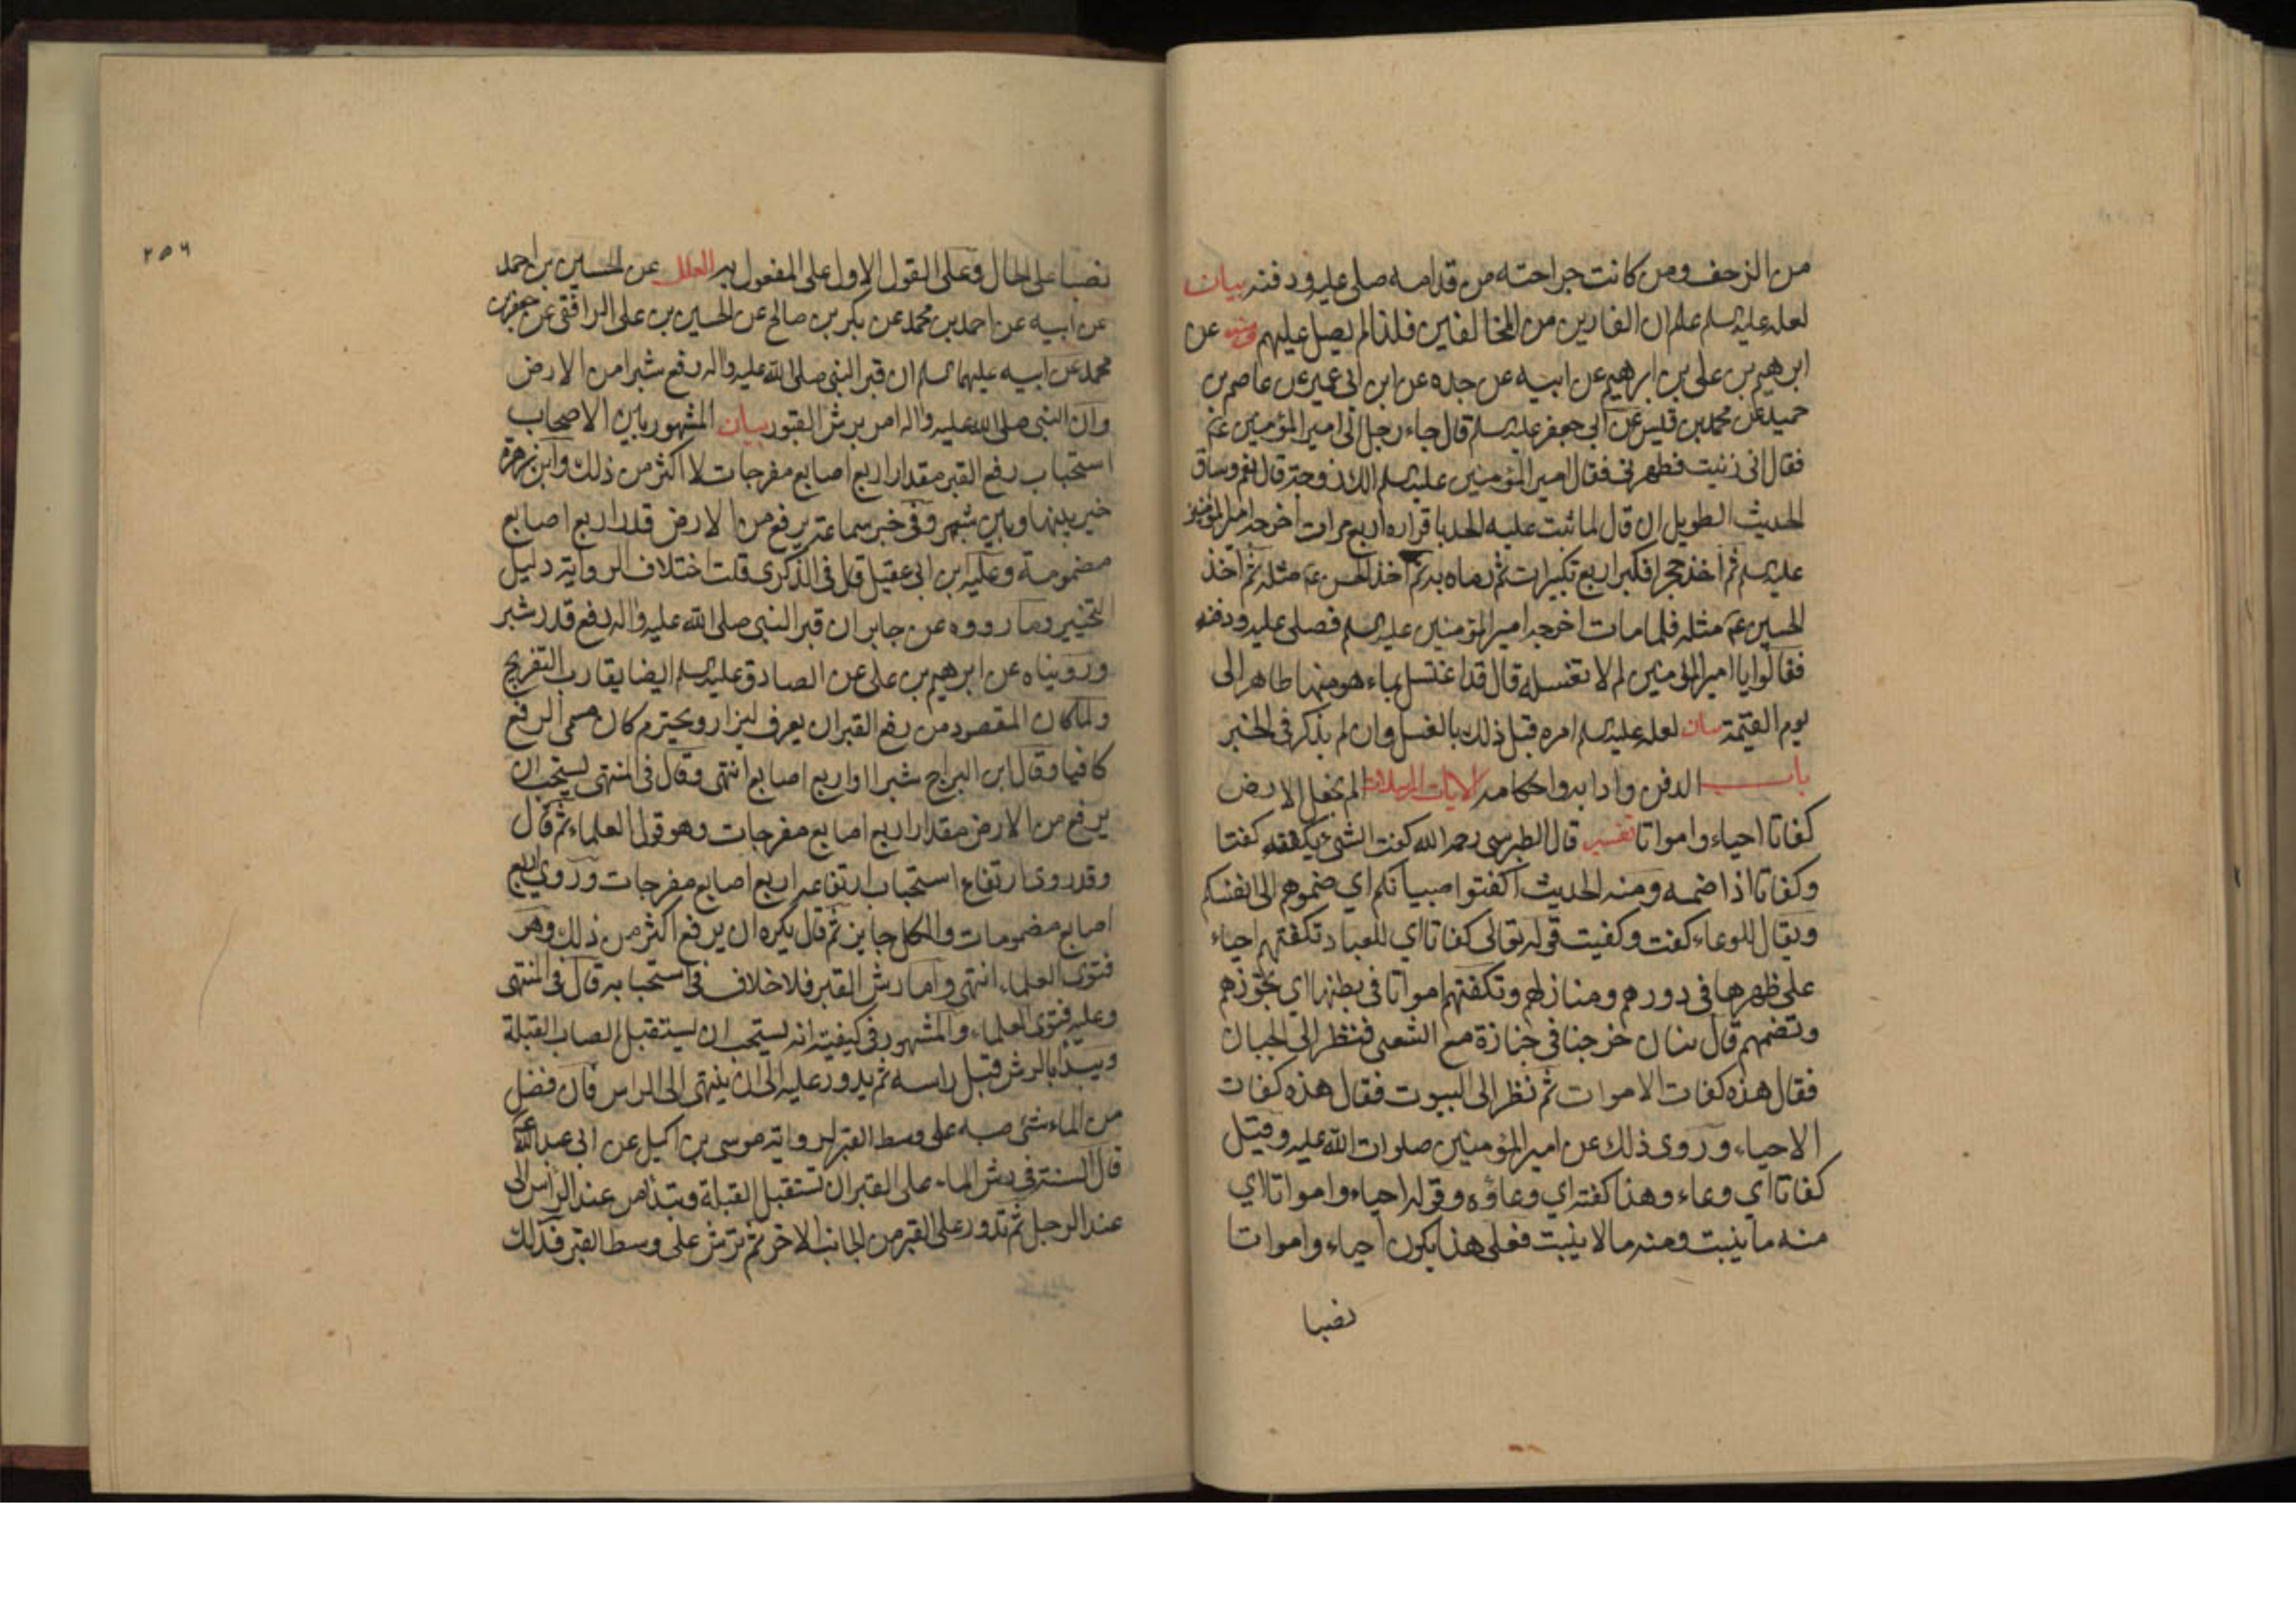 من الزحف ومن كانت جراحته من قدامه صلى عليه ودفنه بيان
لعله عليه السلم علم ان الفارين من المخالفين فلذا لم يصل عليهم ومنه عن
ابرهيم بن على بن ابرهيم عن ابيه عن جده عن ابن ابى عمير عن عاصم بن
حميد عن محمد بن قيس عن ابى جعفر عليه السلم قال جاء رجل الى امير المؤمنين عم
فقال انى زنيت فطهرنى فقال امير المؤمنين عليه السلم الك زوجة قال نعم وساق
الحديث الطويل ان قال لما ثبت عليه الحد باقراره اربع مرات اخرجه امير المؤمنين
عليه السلم ثم اخذ حجرا فكبر اربع تكبيرات ثم رماه به ثم اخذ الحسن عم مثله ثم اخذ
الحسين عم مثله فلما مات اخرجه امير المؤمنين عليه السلم فصلى عليه ودفنه
فقالوا يا امير المؤمنين لم لا تغسله قال قد اغتسل بماء هو منها طاهر الى
يوم القيمة بيان لعله عليه السلم امره قبل ذلك بالغسل وان لم يذكر فى الخبر
باب الدفن وادابه واحكامه الايات المرسلات الم نجعل الارض
كفاتا احياء وامواتا تفسير قال الطبرسى رحمه الله كفت الشئ يكفته كفتا
وكفاتا اذا ضمه ومنه الحديث اكفتوا صبيانكم اي ضموهم الى انفسكم
ويقال للوعاء كفت وكفيت قوله تعالى كفاتا اي للعباد تكفتهم احياء
على ظهرها فى دورهم ومنازلهم وتكفتهم امواتا فى بطنها اي تحوزهم
وتضمهم قال بنان خرجنا فى جنازة مع الشعبى فنظر الى الجبان
فقال هذه كفات الاموات ثم نظر الى البيوت فقال هذه كفات
الاحياء وروى ذلك عن امير المؤمنين صلوات الله عليه وقيل
كفاتا اي وعاء وهذا كفته اي وعاؤه وقوله احياء وامواتا اي
منه ما ينبت ومنه ما لا ينبت فعلى هذا يكون احياء وامواتا
نصبا
٢٥٦
نصبا على الحال وعلى القول الاول على المفعول به العلل عن الحسين بن احمد
عن ابيه عن احمد بن محمد عن بكر بن صالح عن الحسين بن على الرافقى عن جعفر بن
محمد عن ابيه عليهما السلم ان قبر النبى صلى الله عليه واله رفع شبرا من الارض
وان النبى صلى الله عليه واله امر برش القبور بيان المشهور بين الاصحاب
استحباب رفع القبر مقدار اربع اصابع مفرجات لا اكثر من ذلك وابن زهرة
خير بينها وبين شبر وفى خبر سماعة يرفع من الارض قدر اربع اصابع
مضمومة وعليه ابن ابى عقيل قال فى الذكرى قلت اختلاف الرواية دليل
التخيير وما رووه عن جابر ان قبر النبى صلى الله عليه واله رفع قدر شبر
ورويناه عن ابرهيم بن على عن الصادق عليه السلم ايضا يقارب التفريج
ولما كان المقصود من رفع القبر ان يعرف ليزار ويحترم كان مسمى الرفع
كافيا وقال ابن البراج شبرا او اربع اصابع انتهى وقال فى المنتهى يستحب ان
يرفع من الارض مقدار اربع اصابع مفرجات وهو قول العلماء ثم قال
وقد روى ارتفاع استحباب ارتفاعه اربع اصابع مفرجات وروى اربع
اصابع مضمومات والكل جايز ثم قال يكره ان يرفع اكثر من ذلك وهو
فتوى العلماء انتهى واما رش القبر فلا خلاف فى استحبابه قال فى المنتهى
وعليه فتوى العلماء والمشهور فى كيفيته انه يستحب ان يستقبل الصاب القبلة
ويبدأ بالرش قبل راسه ثم يدور عليه الى ان ينتهى الى الراس فان فضل
من الماء شئ صبه على وسط القبر لرواية موسى بن اكيل عن ابى عبد الله عم
قال السنة فى رش الماء على القبر ان تستقبل القبلة وتبدأ من عند الرأس الى
عند الرجل ثم تدور على القبر من الجانب الاخر ثم ترش على وسط القبر فذلك